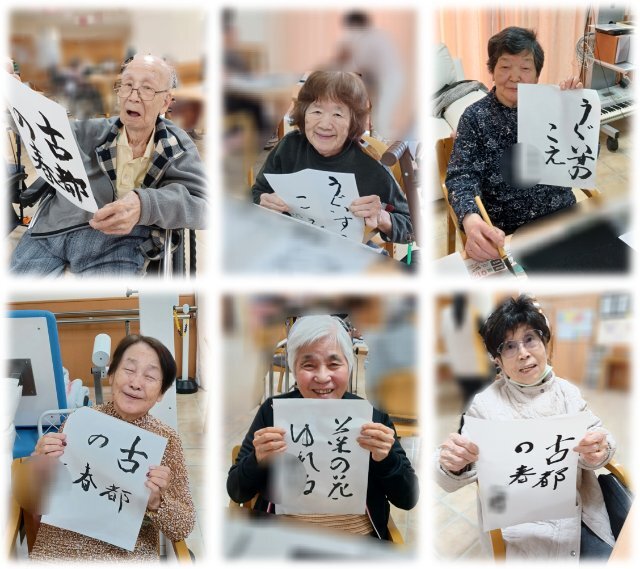 古都
の春
うぐいす
こえ
うぐいすの
こえ
古都
の春
菜の花
ゆれる
古都
の春